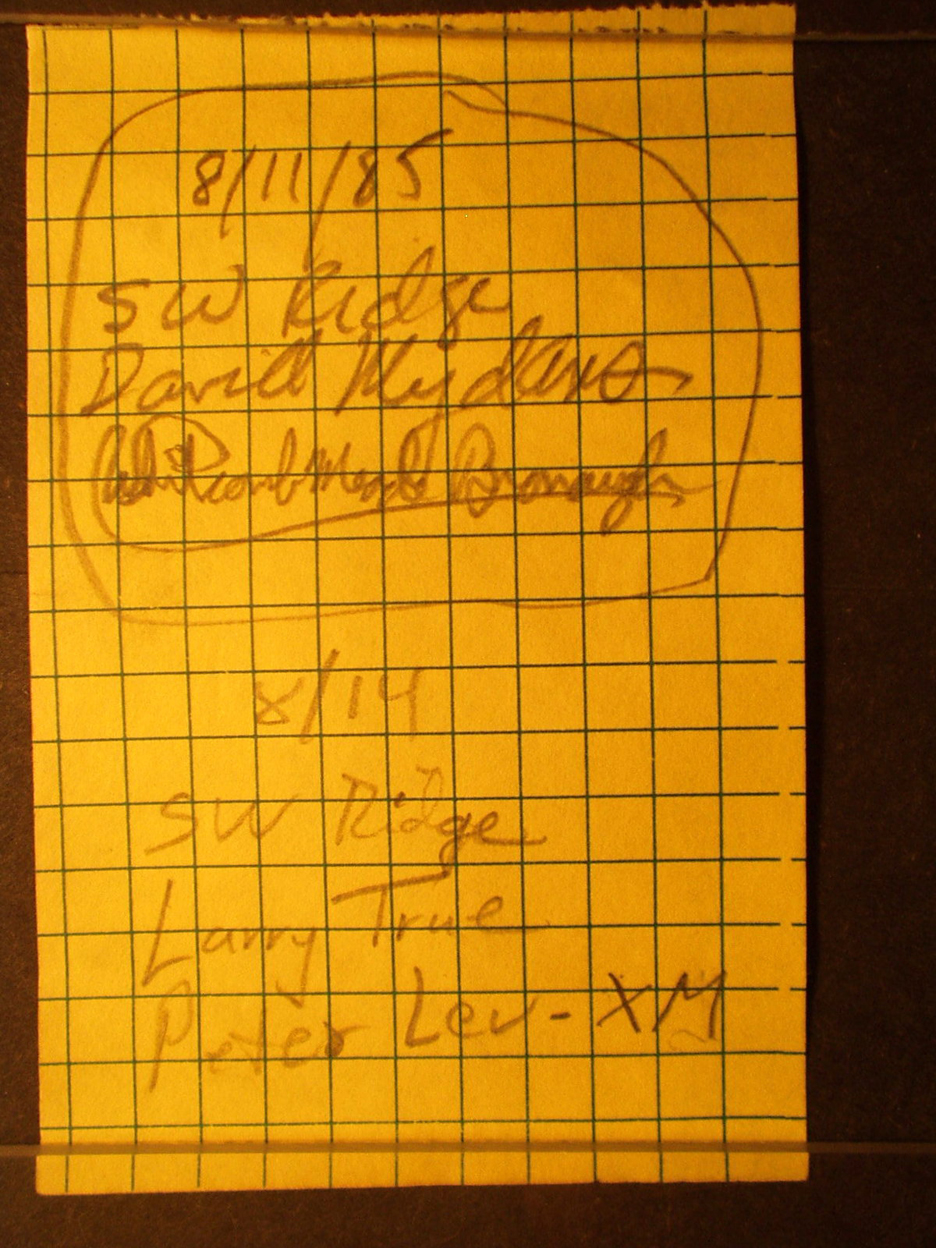 8/11/85
SW Ridge
David Mydans
8/14
SW Ridge
Larry True
Peter Lev - XM